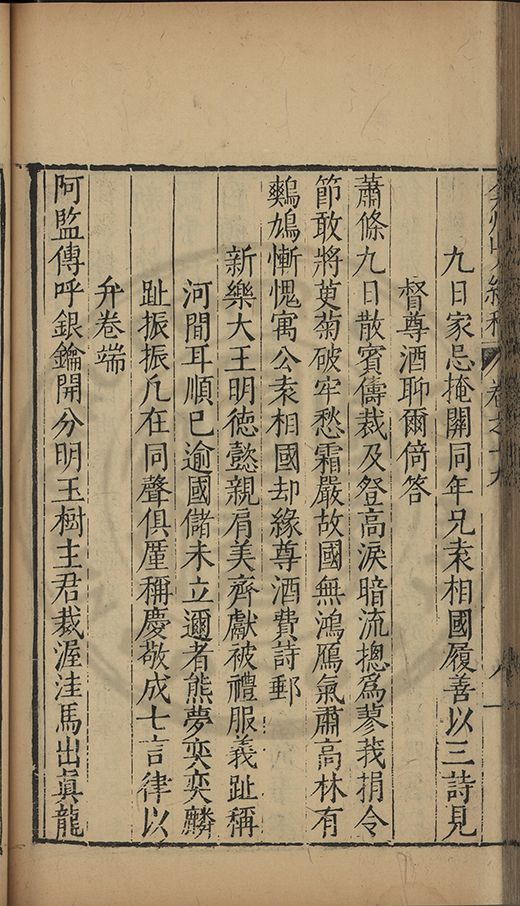 九日家忌掩關同年兄袁相國履善以三詩見
督尊酒聊爾倚答
蕭條九日散賓儔裁及登高淚暗流摠爲蓼莪捐令
節敢將萸菊破牢愁霜嚴故國無鴻鴈氣肅高林有
鷯鳩慚愧寓公袁相國却緣尊酒費詩郵
新樂大王明徳懿親肩美齊獻被禮服義趾稱
河間耳順已逾國儲未立邇者熊夢奕奕麟
趾振振凢在同聲俱厪稱慶敬成七言律以
弁卷端
阿監傳呼銀鑰開分明玉樹主君栽渥洼馬出眞龍